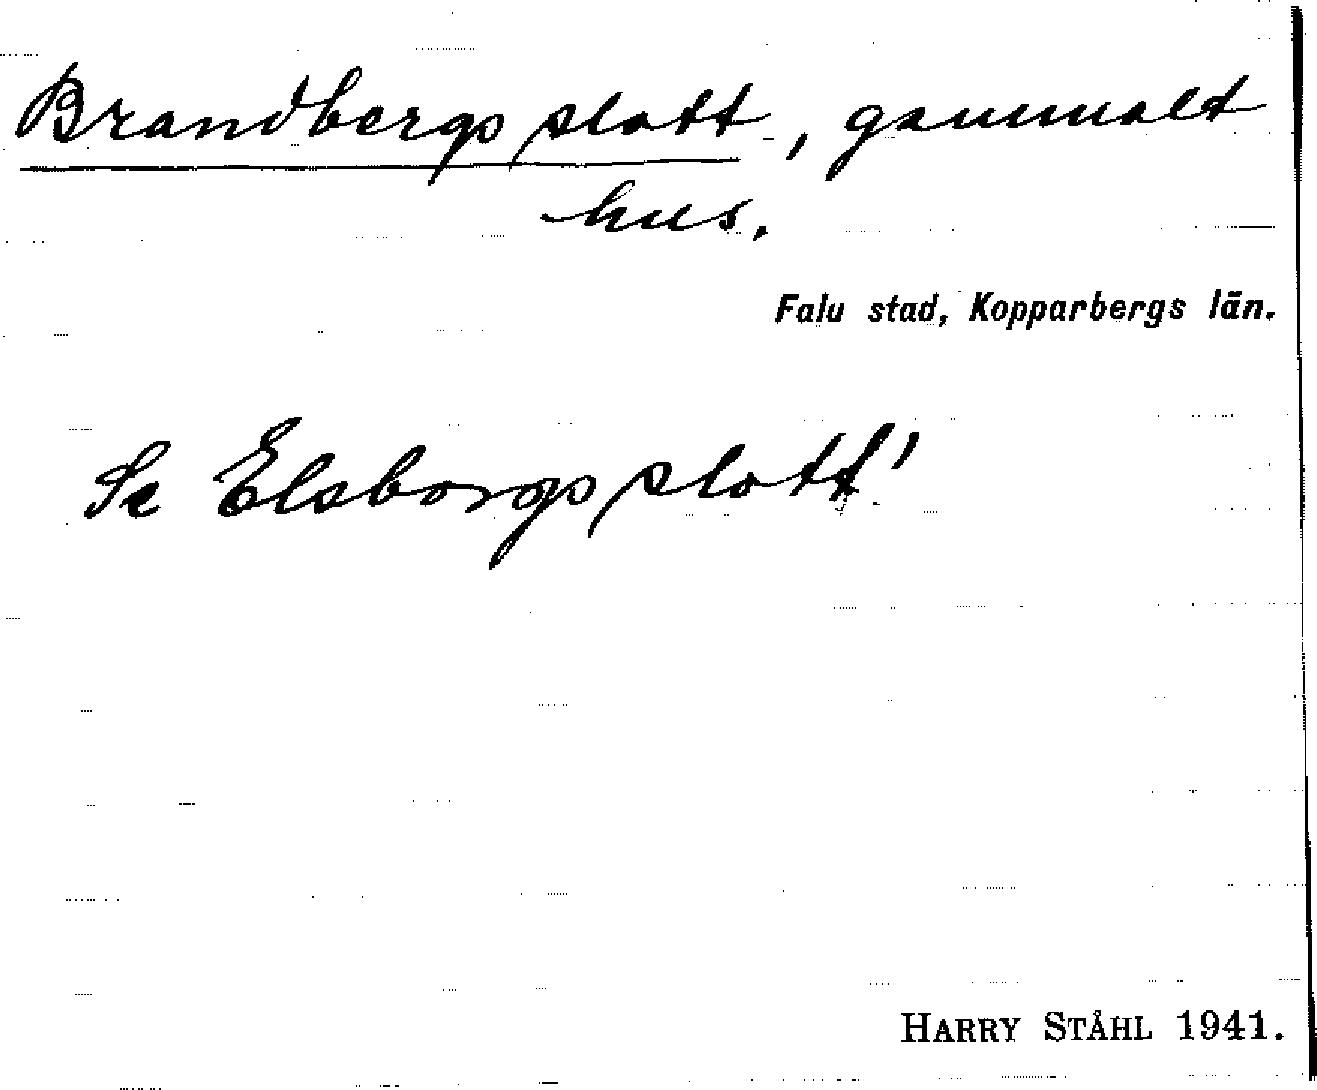 Brandbergs slott, gammalt
hus.
Falu stad, Kopparbergs län.
Se Elsborgs slott!
HARRY STÅHL 1941.